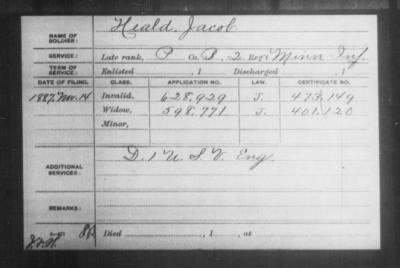 NAME OF SOLDIER: Heald, Jacob
SERVICE: Late rank, P Co. B, 2 Reg't Minn Inf.
TERM OF SERVICE: Enlisted , 1 Discharged , 1
DATE OF FILING. CLASS. APPLICATION NO. LAW. CERTIFICATE NO.
1887, Nov. 14 Invalid, 628.929 J. 473.149
Widow, 598.771 J. 401.120
Minor,
ADDITIONAL SERVICES: D. 1 U. S. V. Eng.
REMARKS:
Died , 1 , at